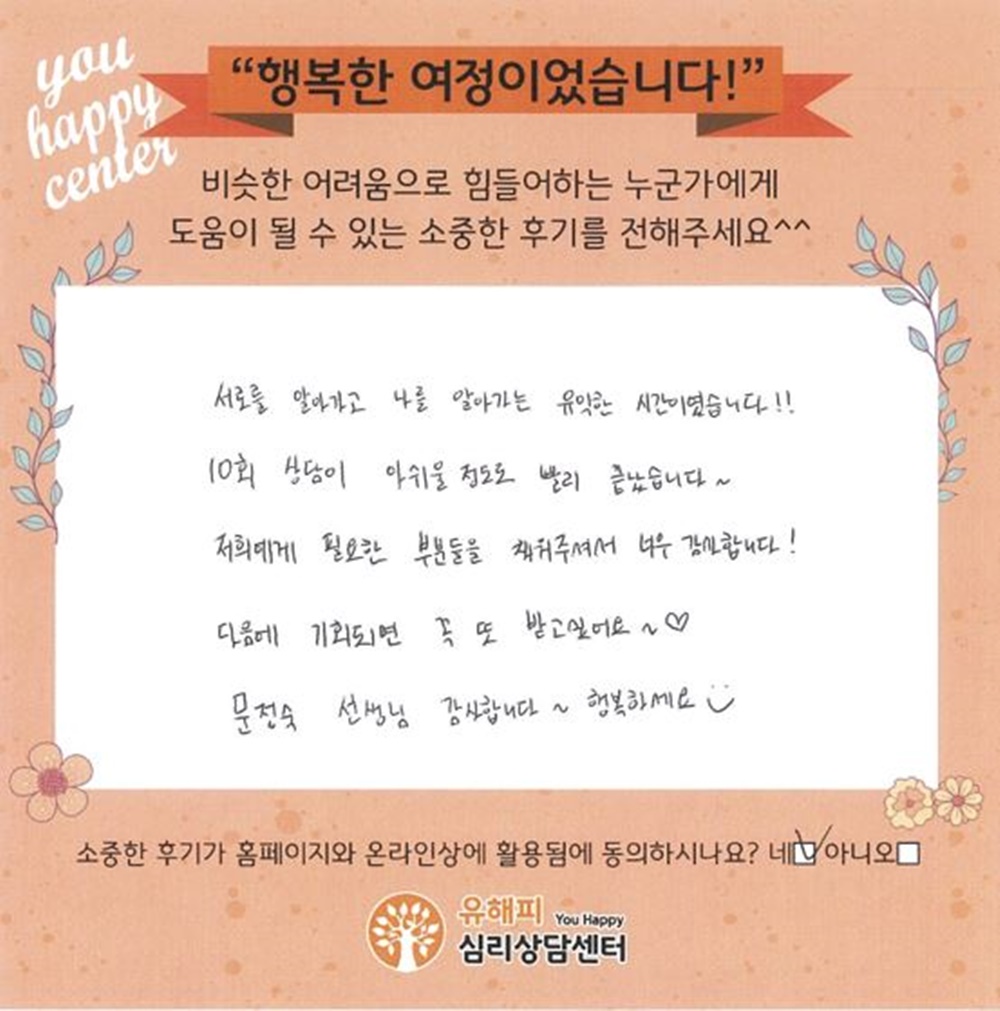 you
happy
center
“행복한 여정이었습니다!”
비슷한 어려움으로 힘들어하는 누군가에게
도움이 될 수 있는 소중한 후기를 전해주세요^^
서로를 알아가고 나를 알아가는 유익한 시간이였습니다!!
10회 상담이 아쉬울 정도로 빨리 끝났습니다~
저희에게 필요한 부분들을 채워주셔서 너무 감사합니다!
다음에 기회되면 꼭 또 받고싶어요~♡
문정숙 선생님 감사합니다~ 행복하세요
소중한 후기가 홈페이지와 온라인상에 활용됨에 동의하시나요? 네☑ 아니오□
유해피 You Happy
심리상담센터